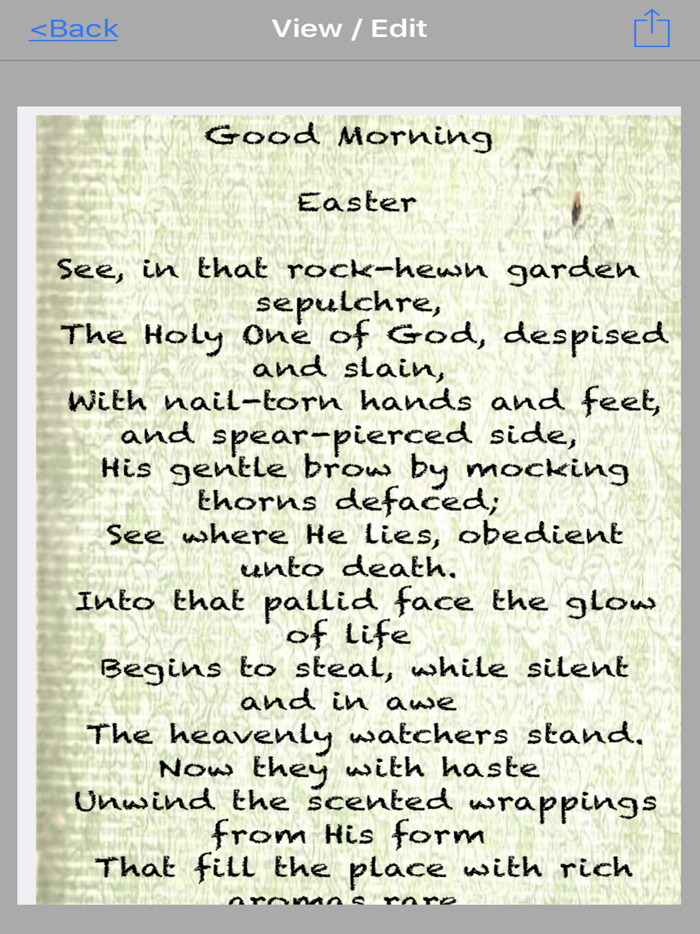 <Back
View / Edit
Good Morning
Easter
See, in that rock-hewn garden
sepulchre,
The Holy One of God, despised
and slain,
With nail-torn hands and feet,
and spear-pierced side,
His gentle brow by mocking
thorns defaced;
See where He lies, obedient
unto death.
Into that pallid face the glow
of life
Begins to steal, while silent
and in awe
The heavenly watchers stand.
Now they with haste
Unwind the scented wrappings
from His form
That fill the place with rich
aromas rare